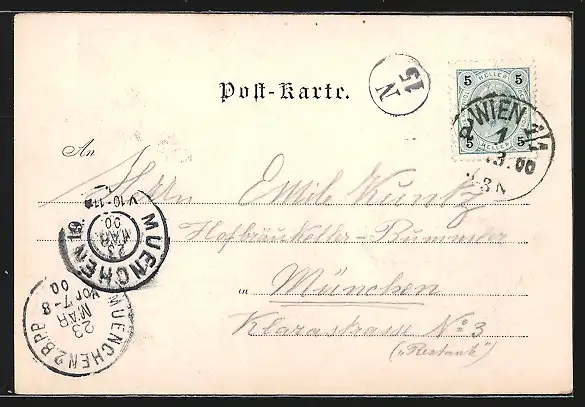 Post-Karte.
15
N
5 HELLER 5
5 HELLER 5
WIEN
1
3.00
3N
An
Herrn Emile Kuntz
Hofbräukeller-Bummler
in München
Klarastrasse No 3
("Restaur")
MUENCHEN 19.
23
MAR
00.
V.10-11
MUENCHEN 2 B.P.P
23
MAR
Vor 7-8
00